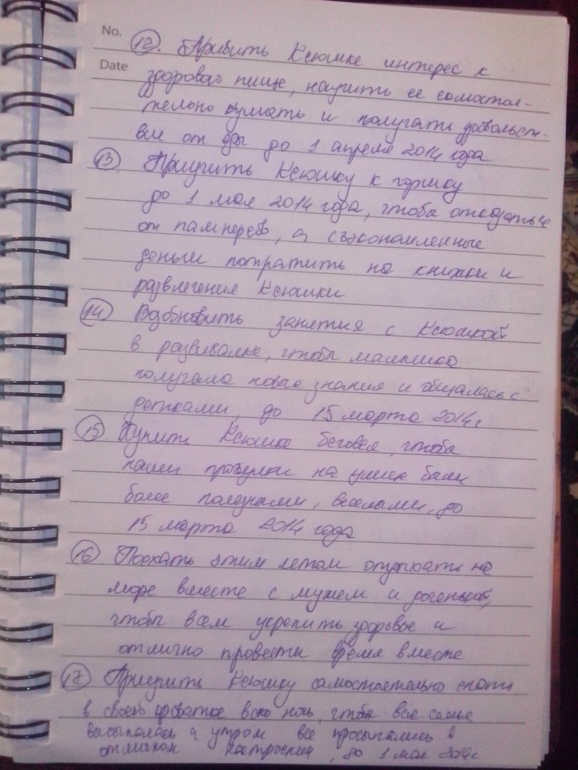 No.
Date
12. Привить Ксюшке интерес к
здоровой пище, научить ее самостоя-
тельно кушать и получать удовольст-
вие от еды до 1 апреля 2014 года
13. Приучить Ксюшку к горшку
до 1 мая 2014 года, чтобы отказаться
от памперсов, а сэкономленные
деньги потратить на книжки и
развлечения Ксюшки
14. Возобновить занятия с Ксюшкой
в развивалке, чтобы малышка
получала новые знания и общалась с
детками, до 15 марта 2014г
15 Купить Ксюшке беговел, чтобы
наши прогулки на улице были
более полезными, веселыми, до
15 марта 2014 года
16 Поехать этим летом отдыхать на
море вместе с мужем и доченькой,
чтобы всем укрепить здоровье и
отлично провести время вместе
17 Приучить Ксюшку самостоятельно спать
в своей кроватке всю ночь, чтобы вся семья
высыпалась и утром все просыпались в
отличном настроении, до 1 мая 2014г